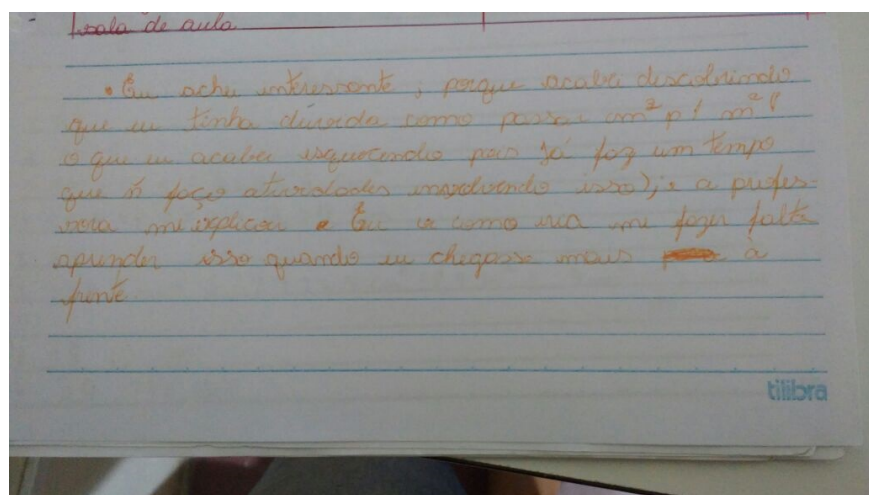 sala de aula
• Eu achei interessante; porque acabei descobrindo
que eu tinha dúvida como passar cm² p/ m² (
o que eu acabei esquecendo pois já faz um tempo
que ñ faço atividades envolvendo isso); e a profes-
sora me explicou. Eu vi como iria me fazer falta
aprender isso quando eu chegasse mais à
frente
tilibra